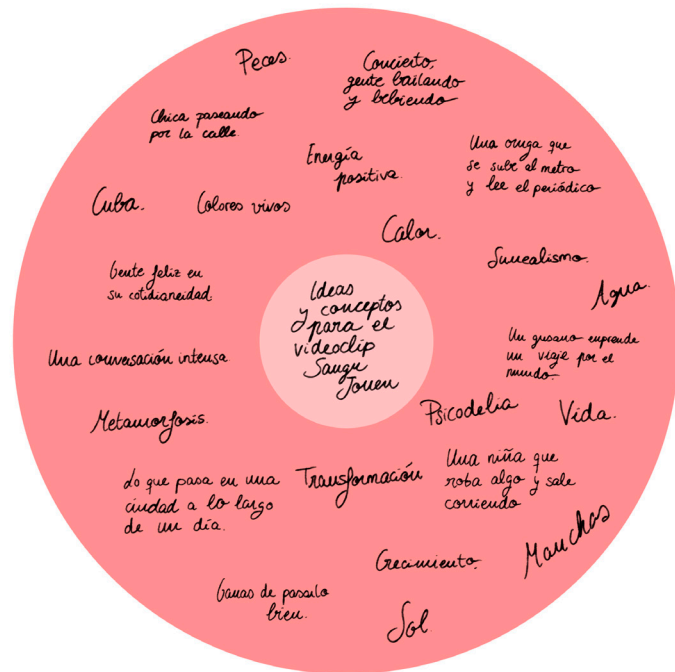 Peces.
Concierto,
gente bailando
y bebiendo
Chica paseando
por la calle.
Energía
positiva.
Una oruga que
se sube al metro
y lee el periódico
Cuba.
Colores vivos
Calor.
Surrealismo.
Gente feliz en
su cotidianeidad.
Agua.
Ideas
y conceptos
para el
videoclip
Sangu
Jouen
Un gusano emprende
un viaje por el
mundo.
Una conversación intensa
Metamorfosis.
Psicodelia
Vida.
Lo que pasa en una
ciudad a lo largo
de un día.
Transformación
Una niña que
roba algo y sale
corriendo
Manchas
Crecimiento.
Ganas de pasarlo
bien.
Sol.